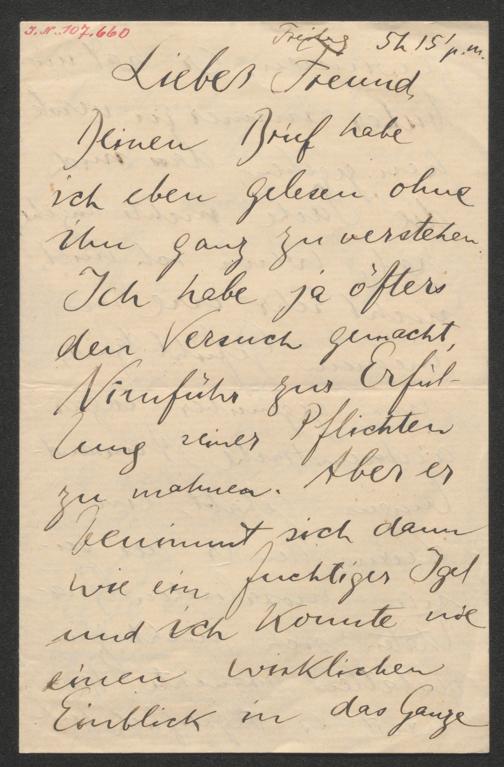 J.N. 107.660
Freitag 5h 15' p.m.
Lieber Freund,
Deinen Brief habe
ich eben gelesen ohne
ihn ganz zu verstehen.
Ich habe ja öfters
den Versuch gemacht,
Nimführ zur Erfül-
lung seiner Pflichten
zu mahnen. Aber er
benimmt sich dann
wie ein fuchtiger Igel
und ich konnte nie
einen wirklichen
Einblick in das Ganze